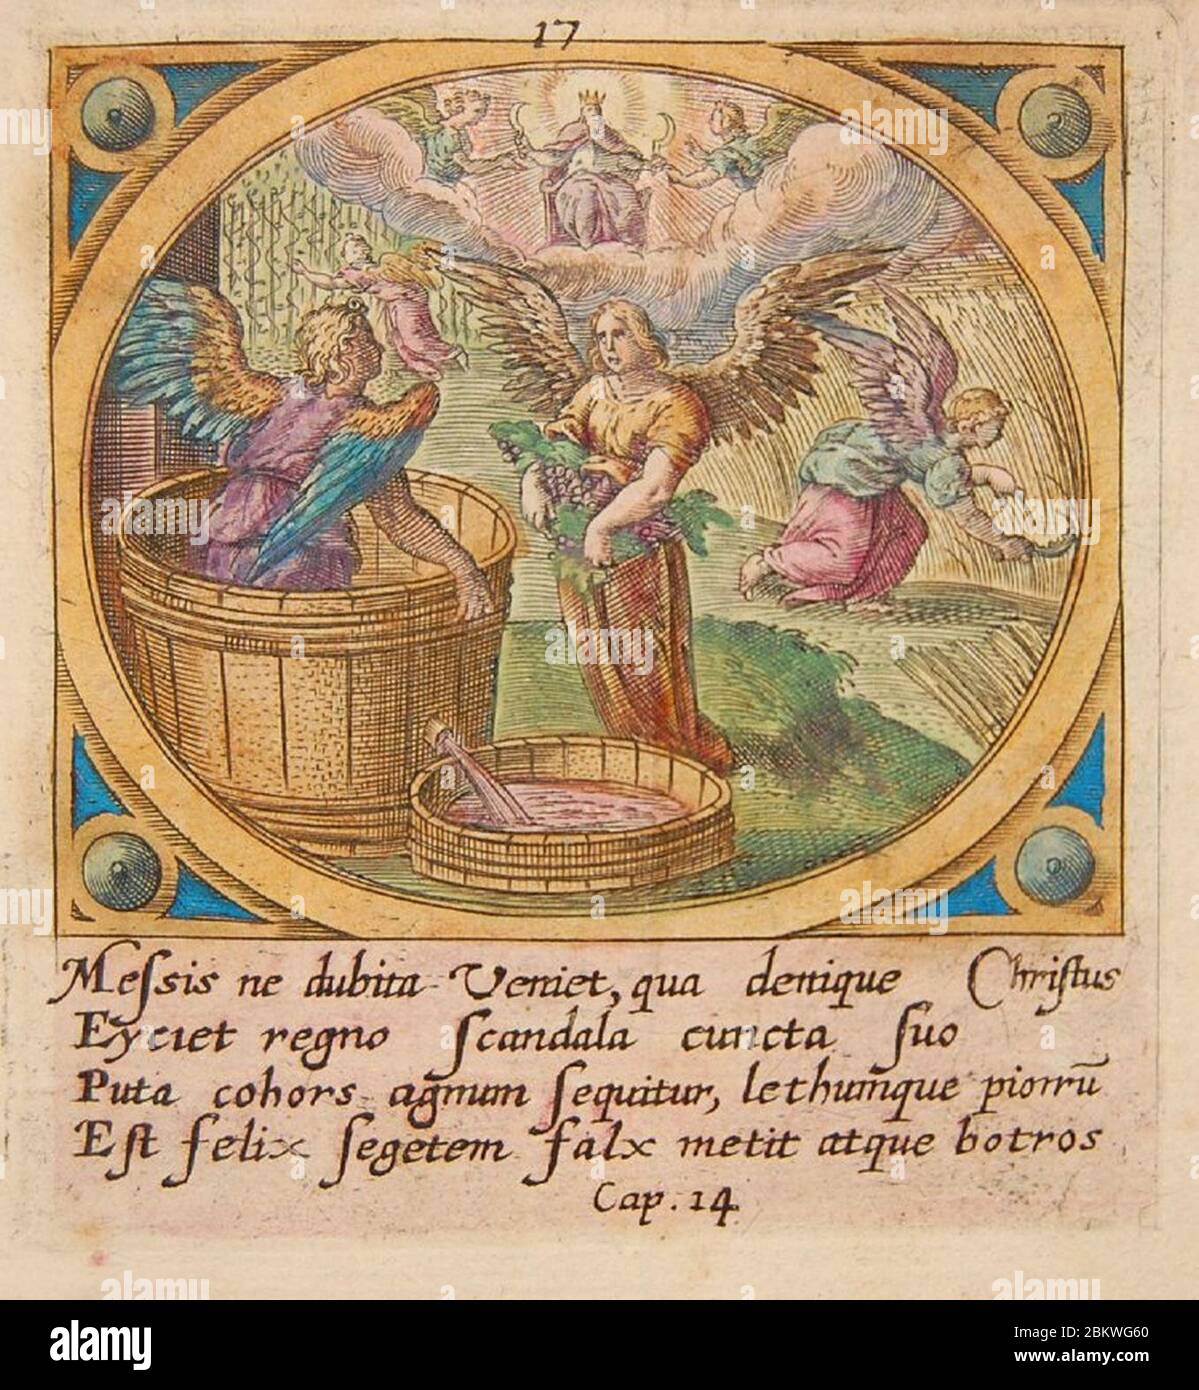 17
Meſsis ne dubita Veniet, qua denique Chriſtus
Eyciet regno ſcandala cuncta ſuo
Puta cohors agnum ſequitur, lethumque piorrũ
Eſt felix ſegetem falx metit atque botros
Cap. 14
alamy
Image ID: 2BKWG60
www.alamy.com